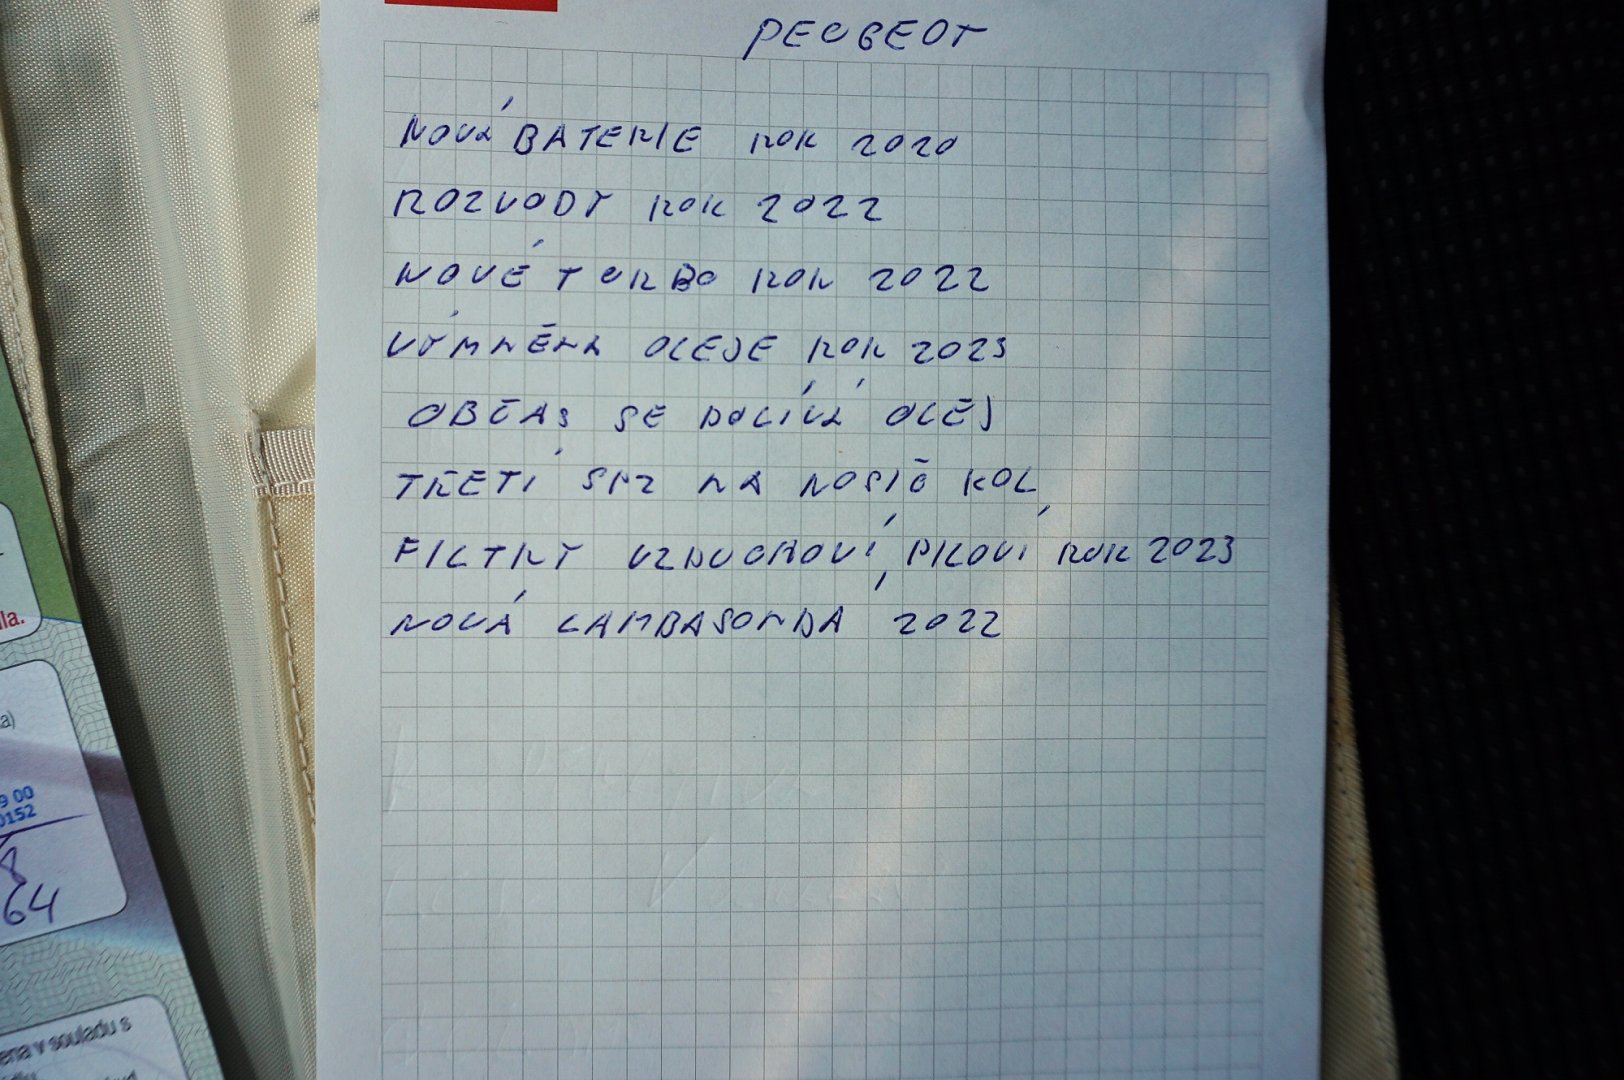 PEUGEOT
NOVÁ BATERIE ROK 2020
ROZVODY ROK 2022
NOVÉ TURBO ROK 2022
VÝMNĚNA OLEJE ROK 2023
OBČAS SE DOLÍVÁ OLEJ
TŘETÍ SPZ NA NOSIČ KOL
FILTRY VZDUCHOVÍ, PILOVÍ ROK 2023
NOVÁ LAMBASONDA 2022
lla.
a)
9 00
0152
8
64
ena v souladu s